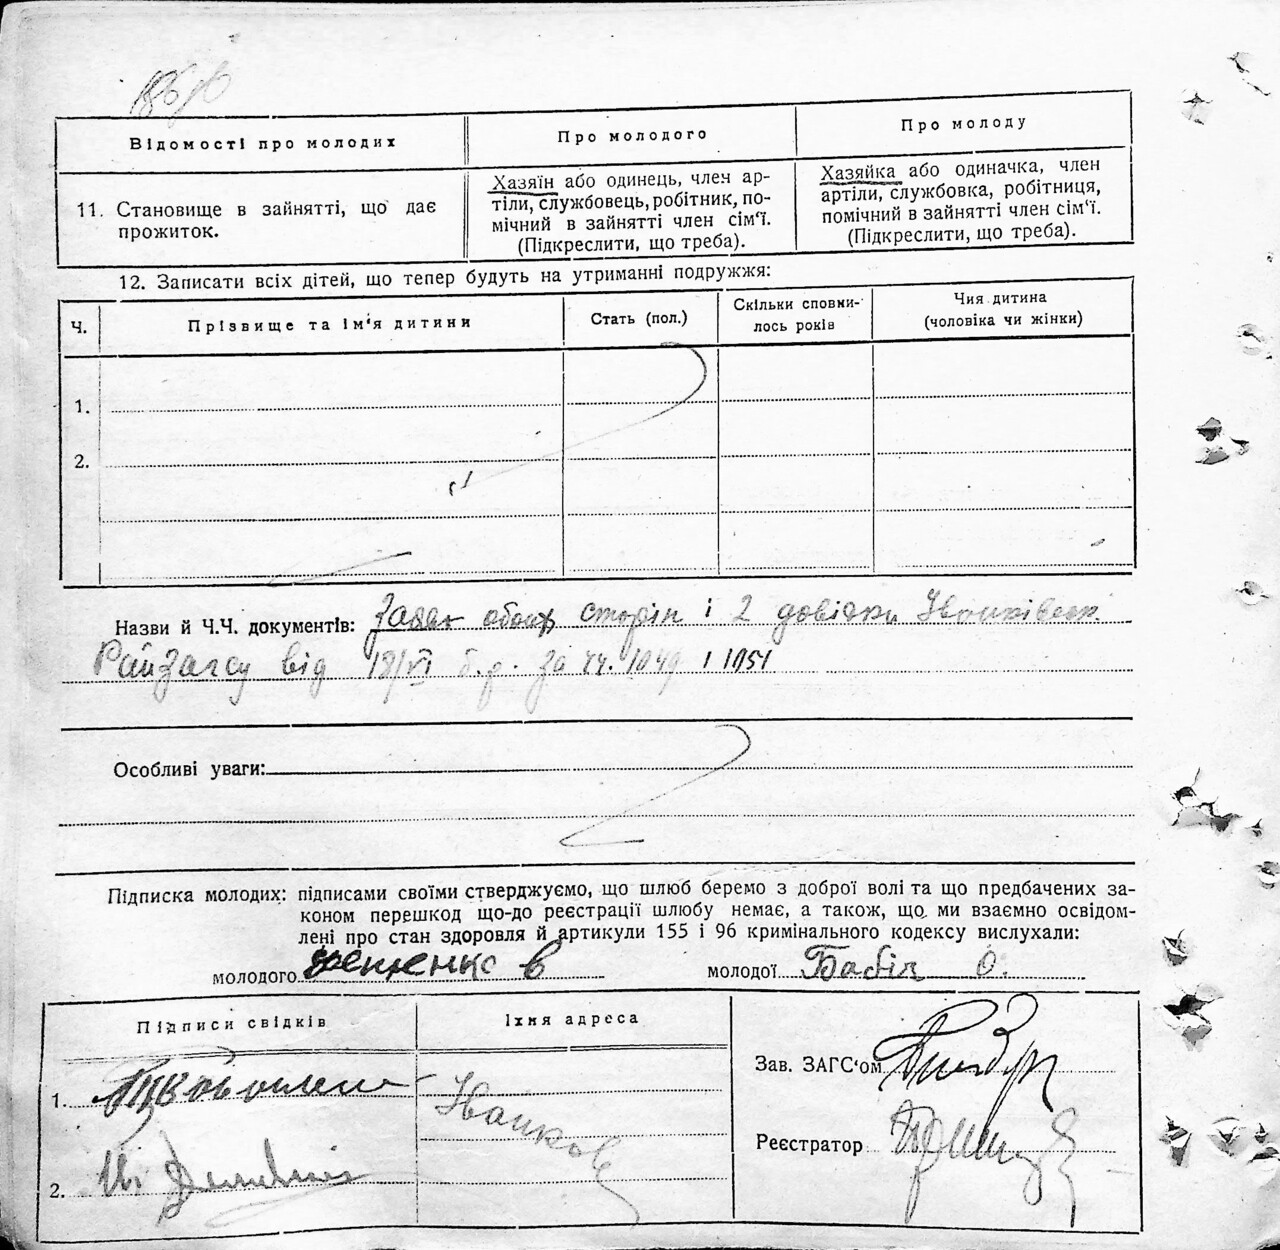 Відомості про молодих
Про молодого
Про молоду
11. Становище в зайнятті, що дає
прожиток.
Хазяїн або одинець, член ар-
тіли, службовець, робітник, по-
мічний в зайнятті член сім'ї.
(Підкреслити, що треба).
Хазяйка або одиначка, член
артіли, службовка, робітниця,
помічний в зайнятті член сім'ї.
(Підкреслити, що треба).
12. Записати всіх дітей, що тепер будуть на утриманні подружжя:
Ч.
Прізвище та ім'я дитини
Стать (пол.)
Скільки сповни-
лось років
Чия дитина
(чоловіка чи жінки)
1.
2.
Назви й Ч.Ч. документів: сторін і 2 довідки Іванківськ.
Райзагсу від 18/VI б.р. за чч. 1049 і 1051
Особливі уваги:
Підписка молодих: підписами своїми стверджуємо, що шлюб беремо з доброї волі та що предбачених за-
коном перешкод що-до реєстрації шлюбу немає, а також, що ми взаємно освідом-
лені про стан здоровля й артикули 155 і 96 кримінального кодексу вислухали:
молодого
молодої Бабіч О.
Підписи свідків
Їхня адреса
1.
Іванков
2.
Зав. ЗАГС'ом
Реєстратор